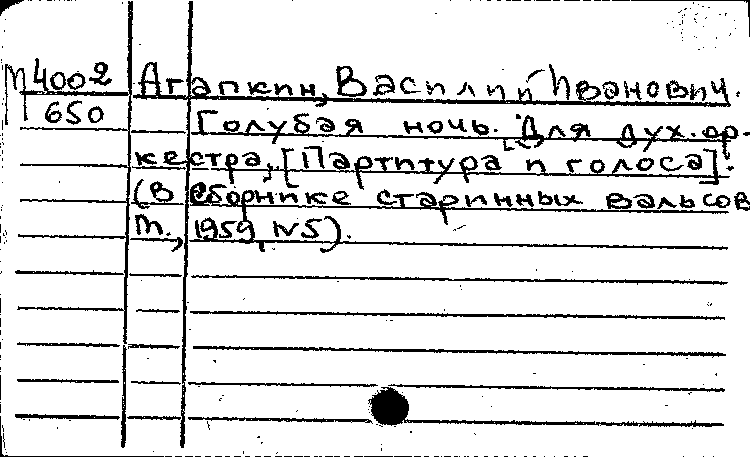 М 4002 Агапкин, Василий Иванович.
650 Голубая ночь. Для дух. ор-
кестра, [Партитура и голоса].
(В сборнике старинных вальсов
М., 1959, №5).